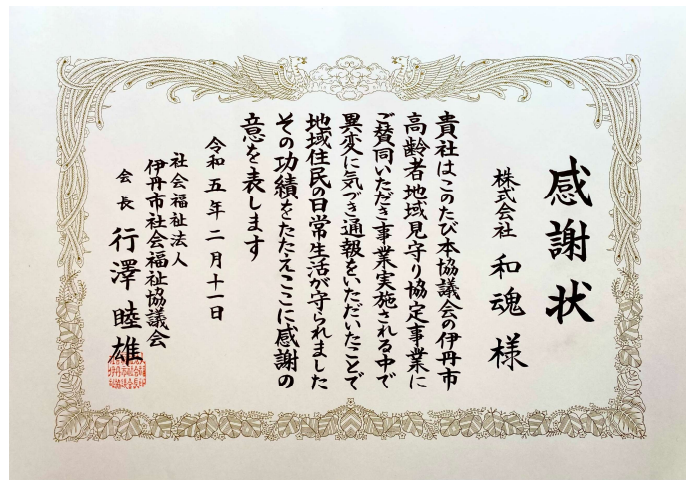 感謝状
株式会社 和魂 様
貴社はこのたび本協議会の伊丹市
高齢者地域見守り協定事業に
ご賛同いただき事業実施される中で
異変に気づき通報をいただいたことで
地域住民の日常生活が守られました
その功績をたたえここに感謝の
意を表します
令和五年二月十一日
社会福祉法人
伊丹市社会福祉協議会
会長 行澤睦雄